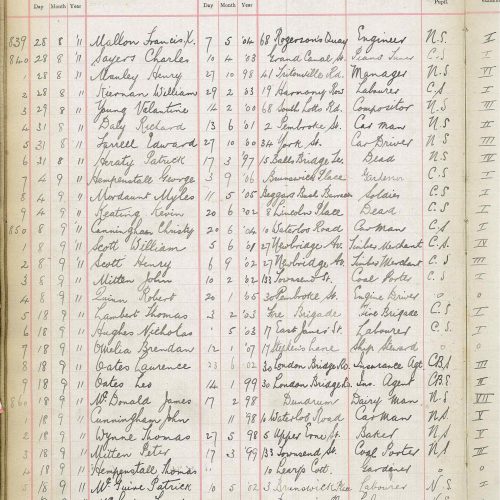 Day Month Year Day Month Year Pupil
839 28 8 '11 Mallon Francis X. 7 5 '04 68 Rogerson's Quay Engineer N.S. I
840 28 8 '11 Sayers Charles 10 4 '03 Grand Canal St. Piano Tuner C.S. I
1 28 8 '11 Manley Henry 27 10 98 41 Tritonville Rd. Manager N.S. VI
2 28 8 '11 Kiernan William 29 2 03 19 Harmony Row Labourer C.S. I
3 29 8 '11 Young Valantine 14 2 '00 68 South Lotts Rd. Compositor N.S.
4 31 8 '11 Daly Richard 13 6 '01 2 Pembroke St. Car man N.S.
5 31 8 '11 Farrell Edward 27 10 '00 34 York St. Car Driver N.S.
6 31 8 '11 Heraty Patrick 17 3 '97 15 Balls Bridge Ter. Dead N.S. IV
7 4 9 '11 Hempenstall George 3 9 '06 Brunswick Place C.S. I
8 4 9 '11 Mordaunt Myles 11 5 '05 Beggars Bush Barracks Soldier C.S. I
9 4 9 '11 Keating Kevin 20 6 '02 8 Lincoln Place Dead C.S. I
850 8 9 '11 Cunningham Christy 20 6 '04 10 Waterloo Road Carman C.S. I
1 8 9 '11 Scott William 5 6 '01 27 Newbridge Av. Timber Merchant C.S. IV
2 8 9 '11 Scott Henry 6 9 '02 27 Newbridge Av. Timber Merchant C.S. III
3 8 9 '11 Mitten John 10 2 '02 133 Townsend St. Coal Porter C.S. I
4 8 9 '11 Quinn Robert 20 1 '05 30 Pembroke St. Engine Driver o o
5 18 9 '11 Lambert Thomas 3 2 '03 Fire Brigade Fire Brigade C.S. I
6 18 9 '11 Hughes Nicholas 5 '03 17 East James St. Labourer C.S. I
7 18 9 '11 Omelia Brendan 12 1 '07 17 Stephen's Lane Ship Steward o o
8 18 9 '11 Oates Laurence 23 6 '02 30 London Bridge Ro. Insurance Agt. C.B.S. III
9 18 9 '11 Oates Leo 14 1 '99 30 London Bridge Ro. Ins. Agent C.B.S. V
860 18 9 '11 McDonald James 17 2 98 Dundrum Dairy Man N.S. VII
1 18 9 '11 Cunningham John 11 '98 10 Waterloo Road Car Man N.S. V
2 18 9 '11 Wynne Thomas 27 5 98 5 Upper Erne St. Baker N.S.
3 18 9 '11 Mitten Peter 17 3 '99 133 Townsend St. Coal Porter N.S. III
4 18 9 '11 Hempenstall Thomas 10 Learys Cott. Gardener o
5 18 9 '11 McGuire Patrick 10 5 '02 3 Brunswick Labourer N.S. I